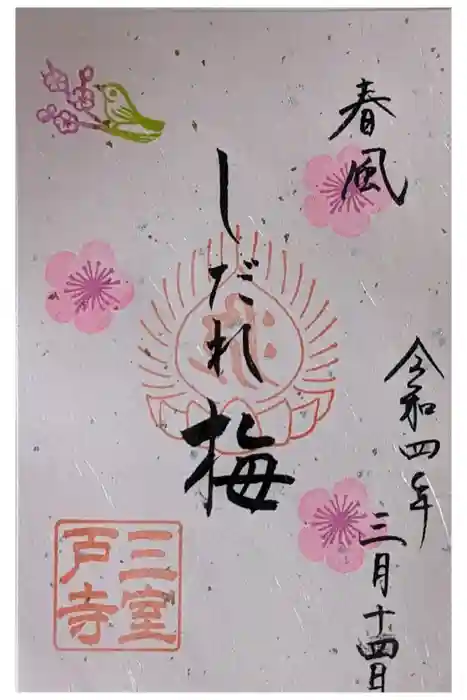 春風
令和四年三月十四日
しだれ梅
三室
戸寺